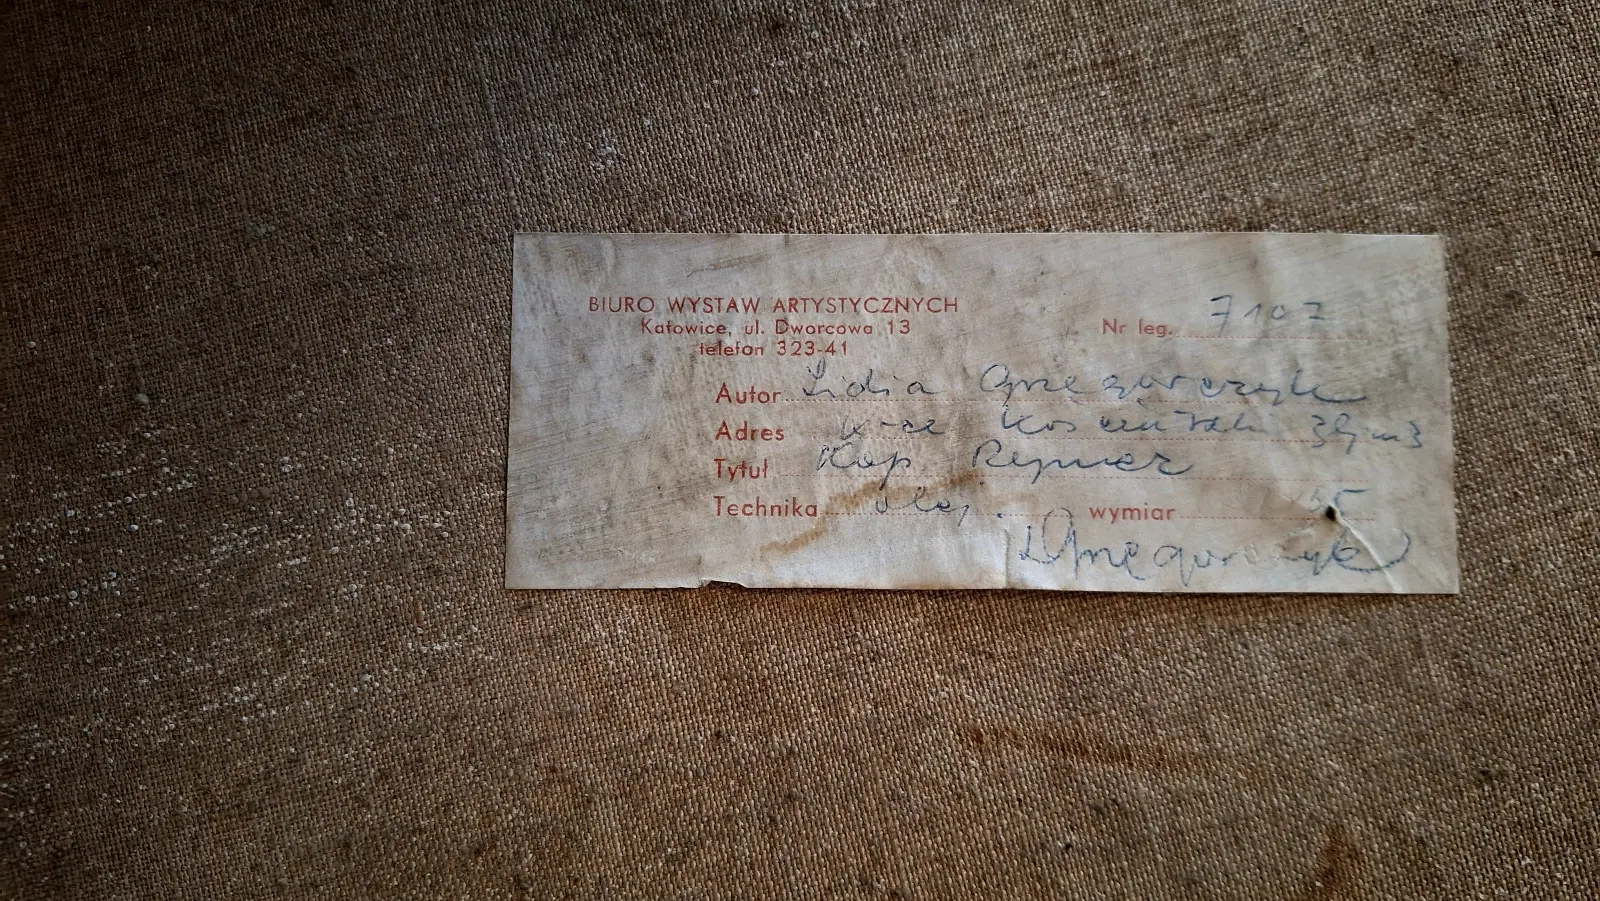 BIURO WYSTAW ARTYSTYCZNYCH
Katowice, ul. Dworcowa 13
telefon 323-41
Nr leg. 7107
Autor Lidia Grzegorczyk
Adres K-ce Kościuszki
Tytuł Kop Rymer
Technika olej. wymiar
LGrzegorczyk